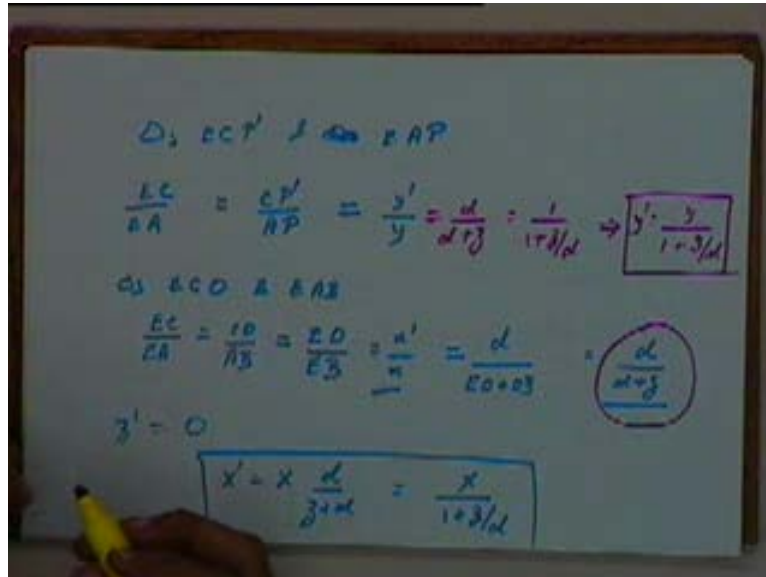 Δs ECP' & EAP
EC/EA = CP'/AP = y'/y = d/(d+z) = 1/(1+z/d) ⇒ y' = y/(1+z/d)
Δs ECO & EAB
EC/EA = CO/AB = EO/EB = x'/x = d/(EO+OB) = d/(d+z)
z' = 0
x' = x d/(z+d) = x/(1+z/d)